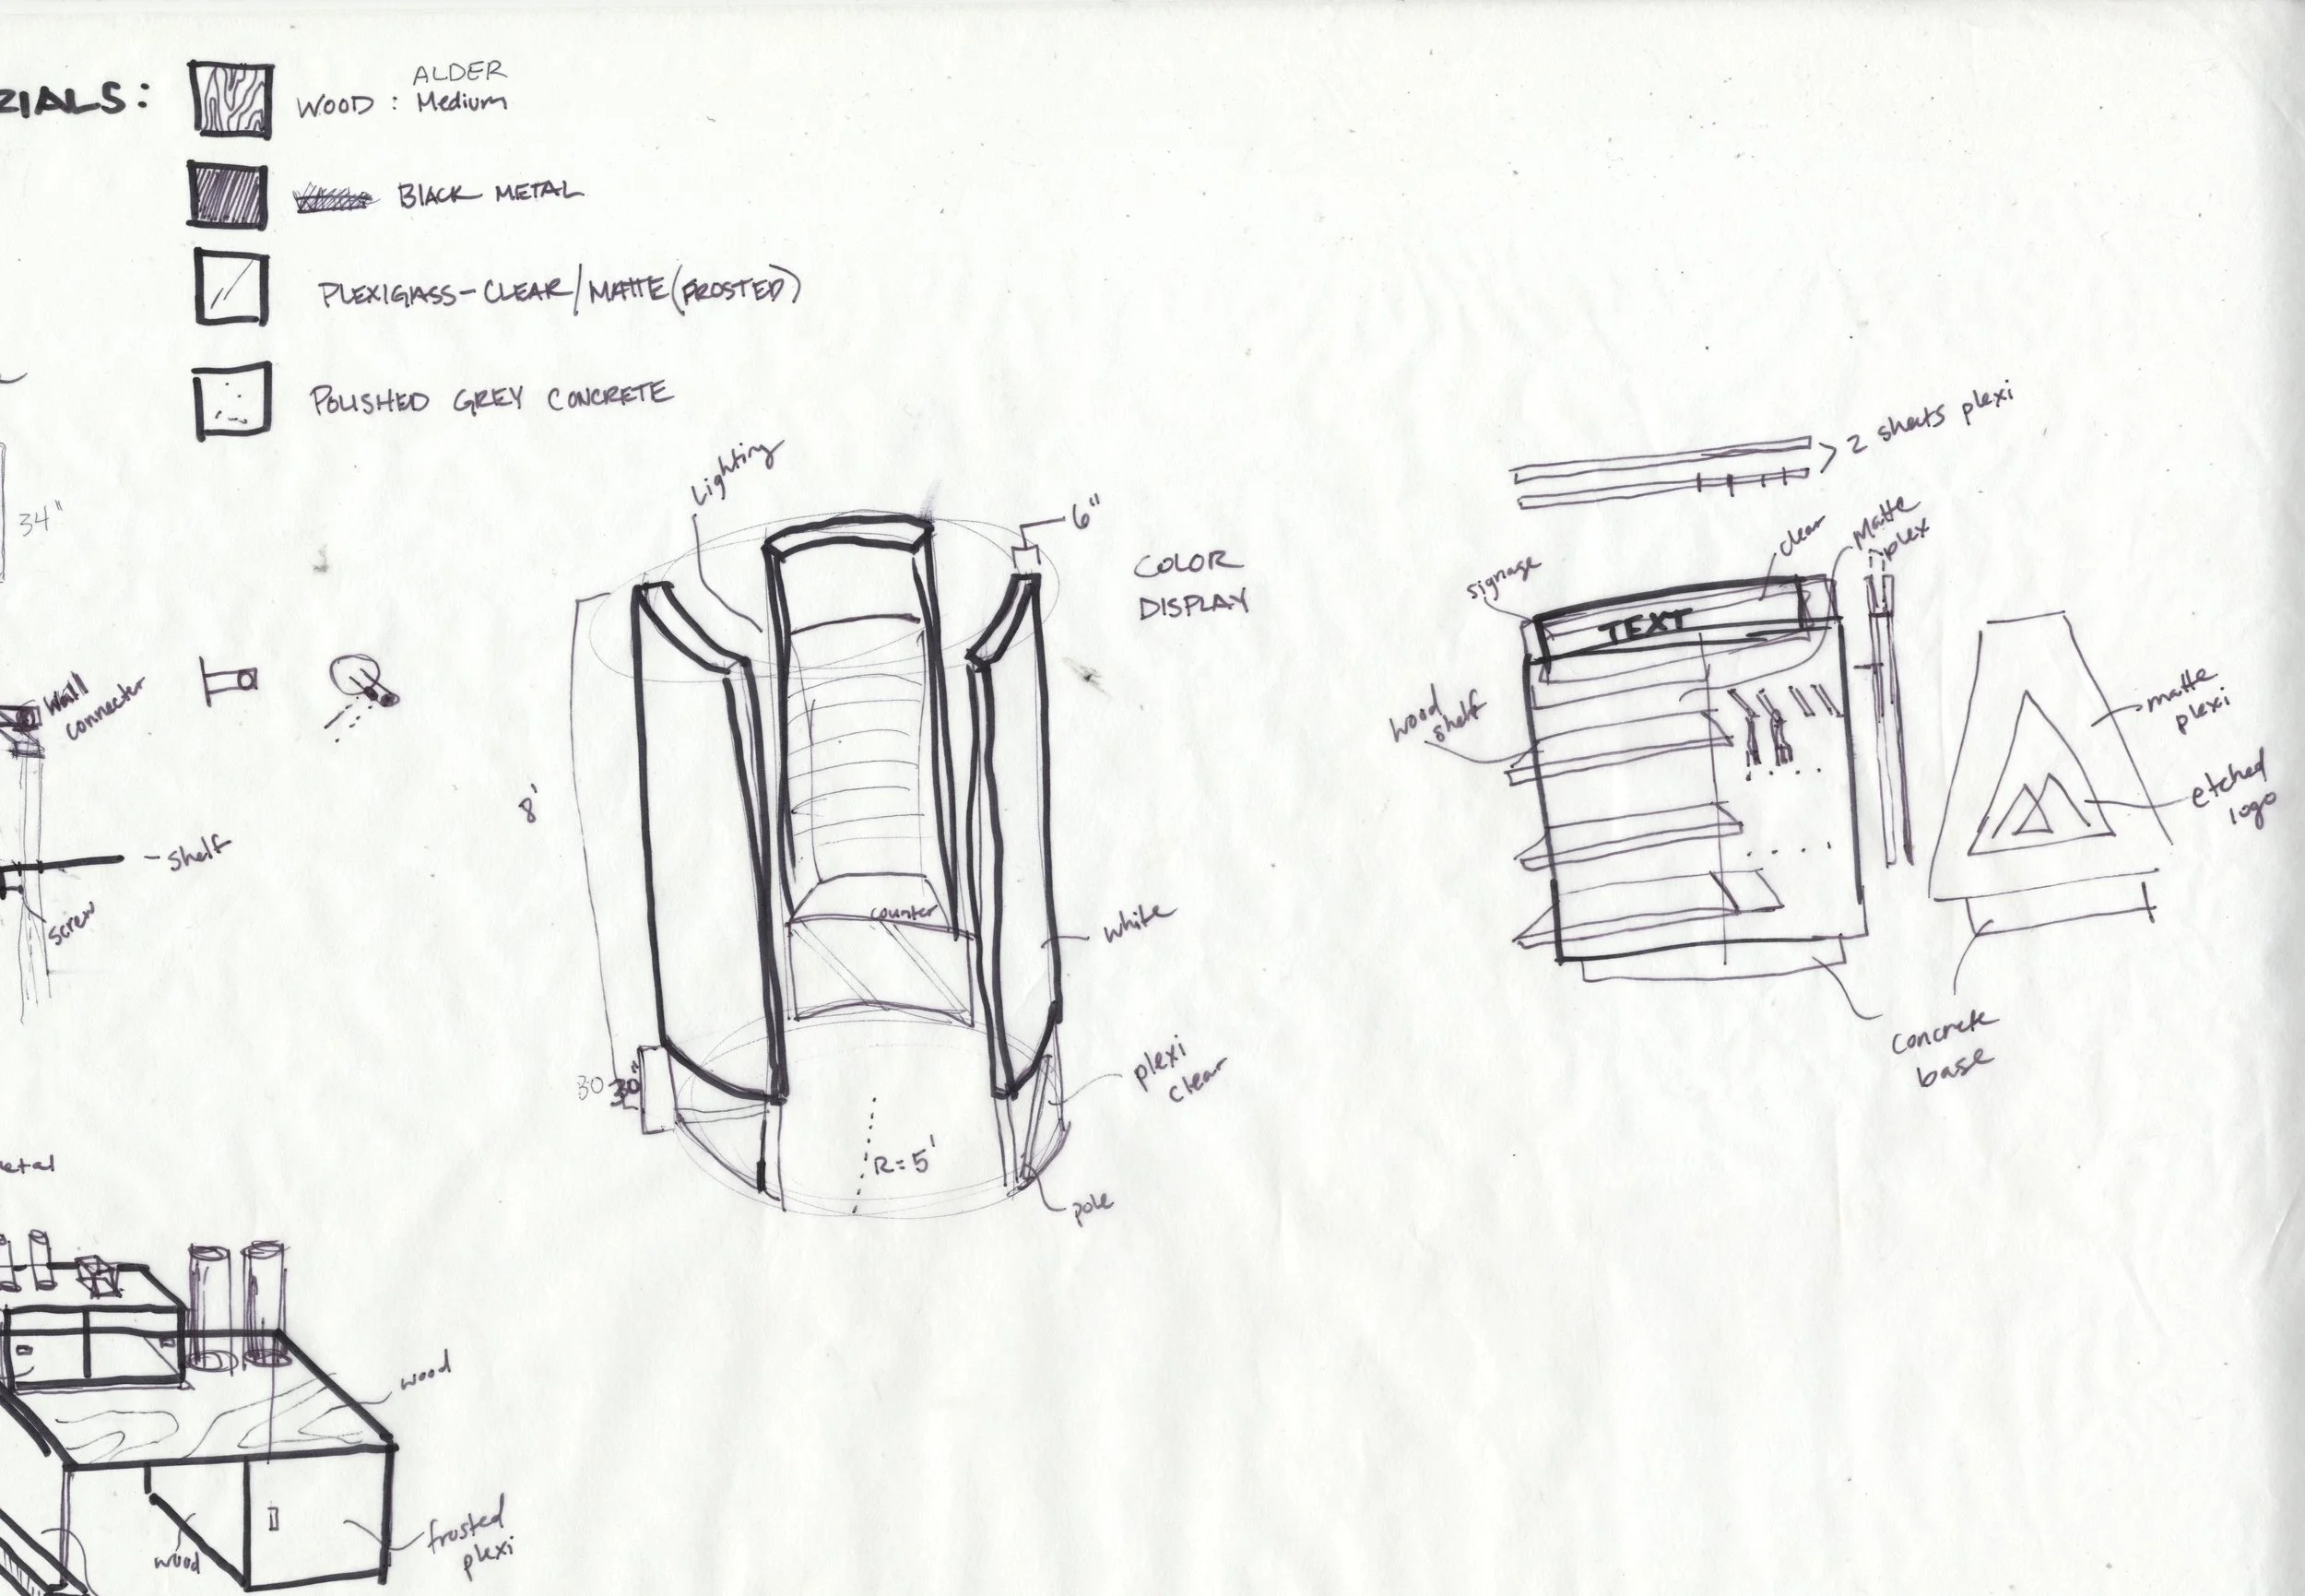 RIALS:
ALDER
WOOD : Medium
BLACK METAL
PLEXIGASS-CLEAR/MATTE(FROSTED)
POLISHED GREY CONCRETE
34"
Lighting
6"
COLOR
DISPLAY
8'
counter
white
30 30"
plexi
clear
R=5'
pole
2 sheets plexi
signage
clear
Matte
plex
TEXT
wood
shelf
matte
plexi
etched
logo
concrete
base
Wall
connecter
- shelf
screw
etal
wood
wood
frosted
plexi